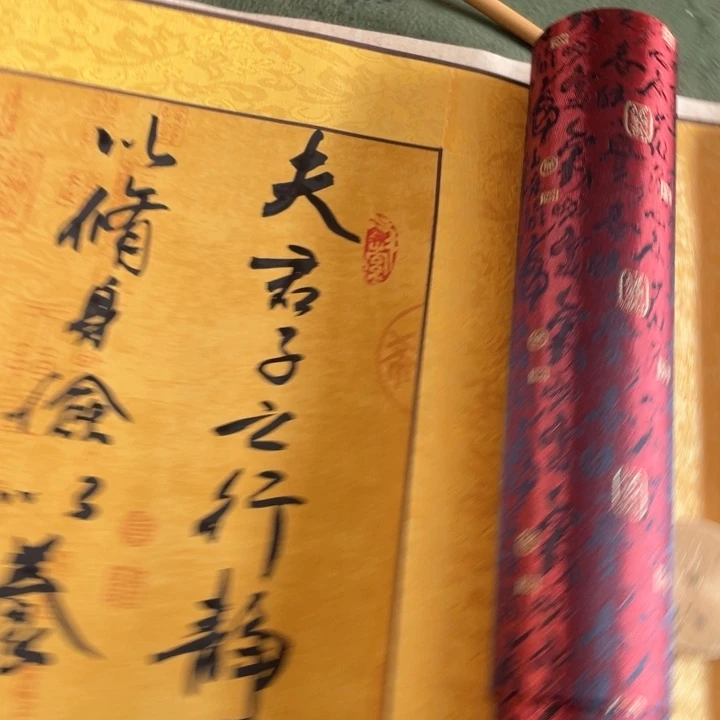 夫君子之行静
以脩身儉以養